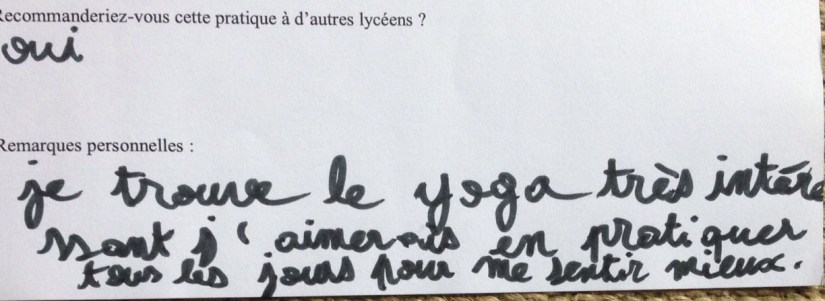 Recommanderiez-vous cette pratique à d'autres lycéens ?
oui
Remarques personnelles :
je trouve le yoga très intére
ssant j'aimerais en pratiquer
tous les jours pour me sentir mieux.